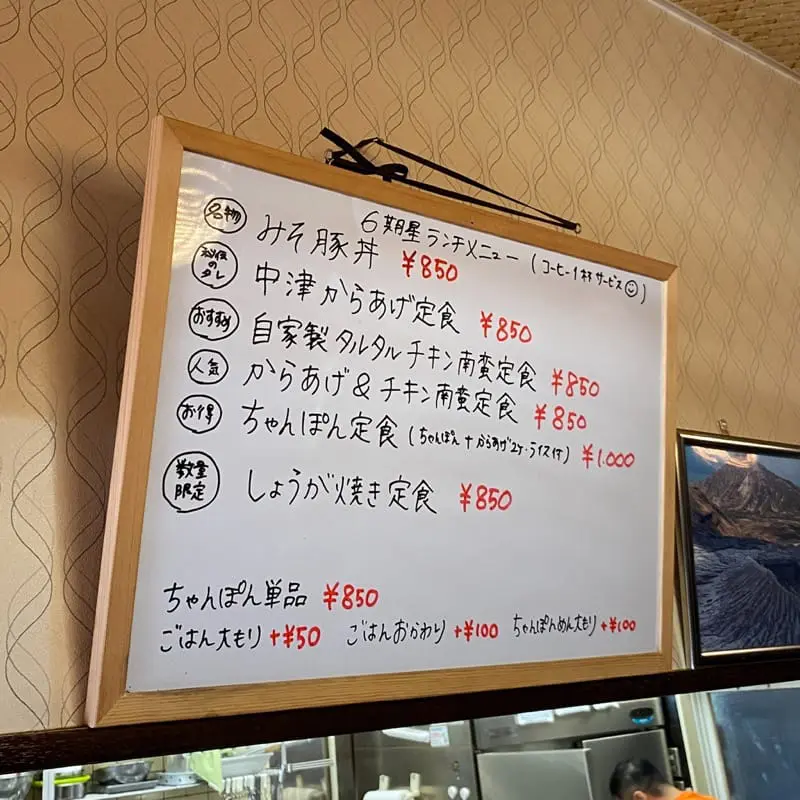 6期星ランチメニュー (コーヒー1杯サービス)
名物 みそ豚丼 ¥850
秘伝のタレ 中津からあげ定食 ¥850
おすすめ 自家製タルタルチキン南蛮定食 ¥850
人気 からあげ&チキン南蛮定食 ¥850
お得 ちゃんぽん定食 (ちゃんぽん+からあげ2ケ・ライス付) ¥1.000
数量限定 しょうが焼き定食 ¥850
ちゃんぽん単品 ¥850
ごはん大もり+¥50 ごはんおかわり+¥100 ちゃんぽんめん大もり+¥100